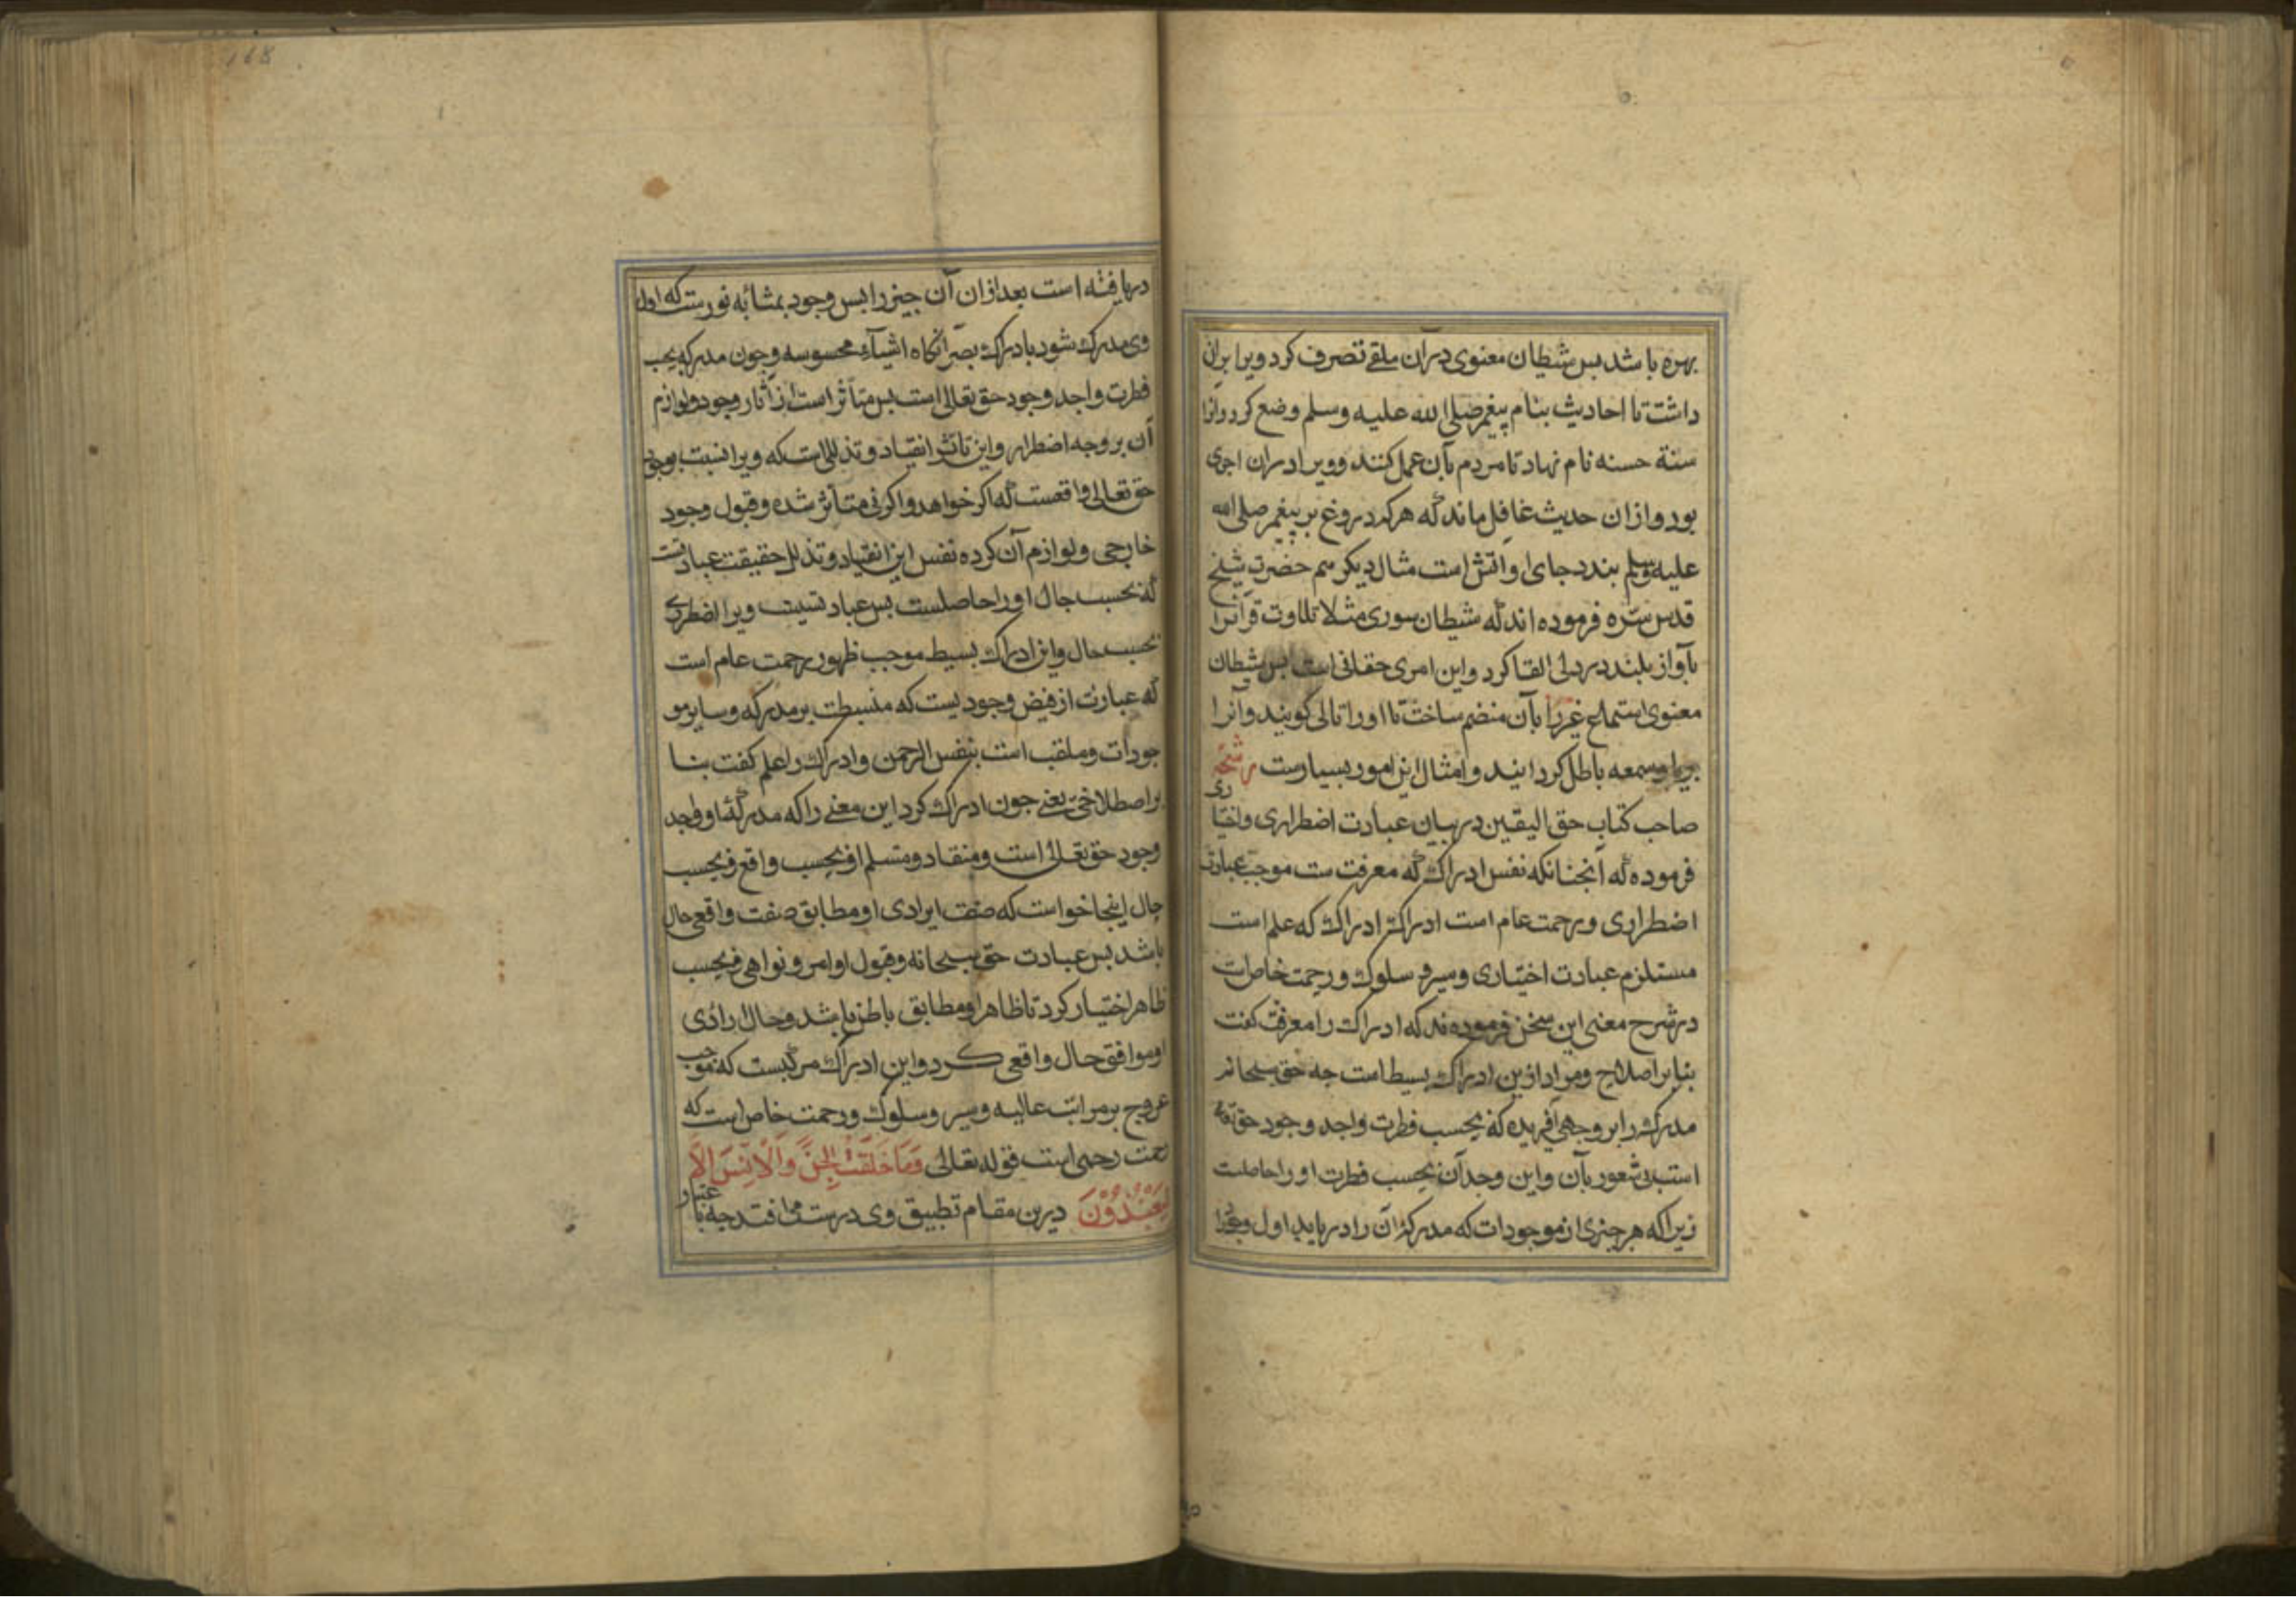 بهره باشد بس شیطان معنوی در آن ملقی تصرف کرد ویرا بران
داشت تا احادیث بنام پیغمبر صلی الله علیه وسلم وضع کرد وانرا
سنة حسنه نام نهاد تا مردم بآن عمل کنند وویرا دران اجری
بود وازان حدیث غافل ماند که هرکه دروغ بر پیغمبر صلی الله
علیه وسلم بندد جای او اتش است مثال دیکر هم حضرت شیخ
قدس سره فرموده اند که شیطان صوری مثلا تلاوت قرانرا
بآواز بلند در دلی القا کرد واین امری حقانی است بس شیطان
معنوی استماع غیر را بآن منضم ساخت تا اورا تالی کویند وآنرا
بریا وسمعه باطل کردانید وامثال این امور بسیارست رشحه
صاحب کتاب حق الیقین در بیان عبادت اضطراری واختیا ری
فرموده که آنجنانکه نفس ادراک که معرفت ست موجب عبادت
اضطراری ورحمت عام است ادراک ادراک که علم است
مستلزم عبادت اختیاری وسیر و سلوک ورحمت خاص است
در شرح معنی این سخن فرموده ند که ادراک را معرفت کفت
بنابر اصلاح ومراد ازین ادراک بسیط است جه حق سبحانه
مدرک را بر وجهی آفریده که بحسب فطرت واجد وجود حق تعالی
است بی شعور بآن واین وجدآن بحسب فطرت اورا حاصلست
زیرا که هر جیزی از موجودات که مدرکه آن را دریابد اول وجود را
دریافته است بعد ازان آن جیز را بس وجود بمثابه نورست که اول
وی مدرک شود بادراک بصر آنکاه اشیآء محسوسه وجون مدرکه بحسب
فطرت واجد وجود حق تعالی است بس متأثر است از آثار وجود ولوازم
آن بر وجه اضطرار واین تأثر انقیاد وتذللی است که ویرا نسبت بوجود
حق تعالی واقعست که اکر خواهد واکر نی متأثر شده وقبول وجود
خارجی ولوازم آن کرده نفس این انقیاد وتذلل حقیقت عبادتست
که بحسب حال اورا حاصلست بس عبادتیست ویرا اضطراری
بحسب حال واین ادراک بسیط موجب ظهور رحمت عام است
که عبارت از فیض وجودیست که منبسطت بر مدرکه وسایر مو
جودات وملقب است بنفس الرحمن وادراک را علم کفت بنا
بر اصطلاحی یعنی جون ادراک کرد این معنی را که مدرکه او واجد
وجود حق تعالی است ومنقاد ومتسلم او بحسب واقع وبحسب
حال اینجا خواست که صفت ایرادی او مطابق صفت واقعی حال
باشد بس عبادت حق سبحانه وقبول اوامر ونواهی وبحسب
ظاهر اختیار کرد تا ظاهر او مطابق باطن باشد وحال ارادی
او موافق حال واقعی کرد واین ادراک مرکبست که موجب
عروج بر مراتب عالیه وسیر وسلوک ورحمت خاص است که
رحمت رحیمی است قوله تعالی وَمَا خَلَقْتُ الْجِنَّ وَالْاِنْسَ اِلَّا
لِیَعْبُدُوْنَ درین مقام تطبیق وی درست می افتد جه باعتبار